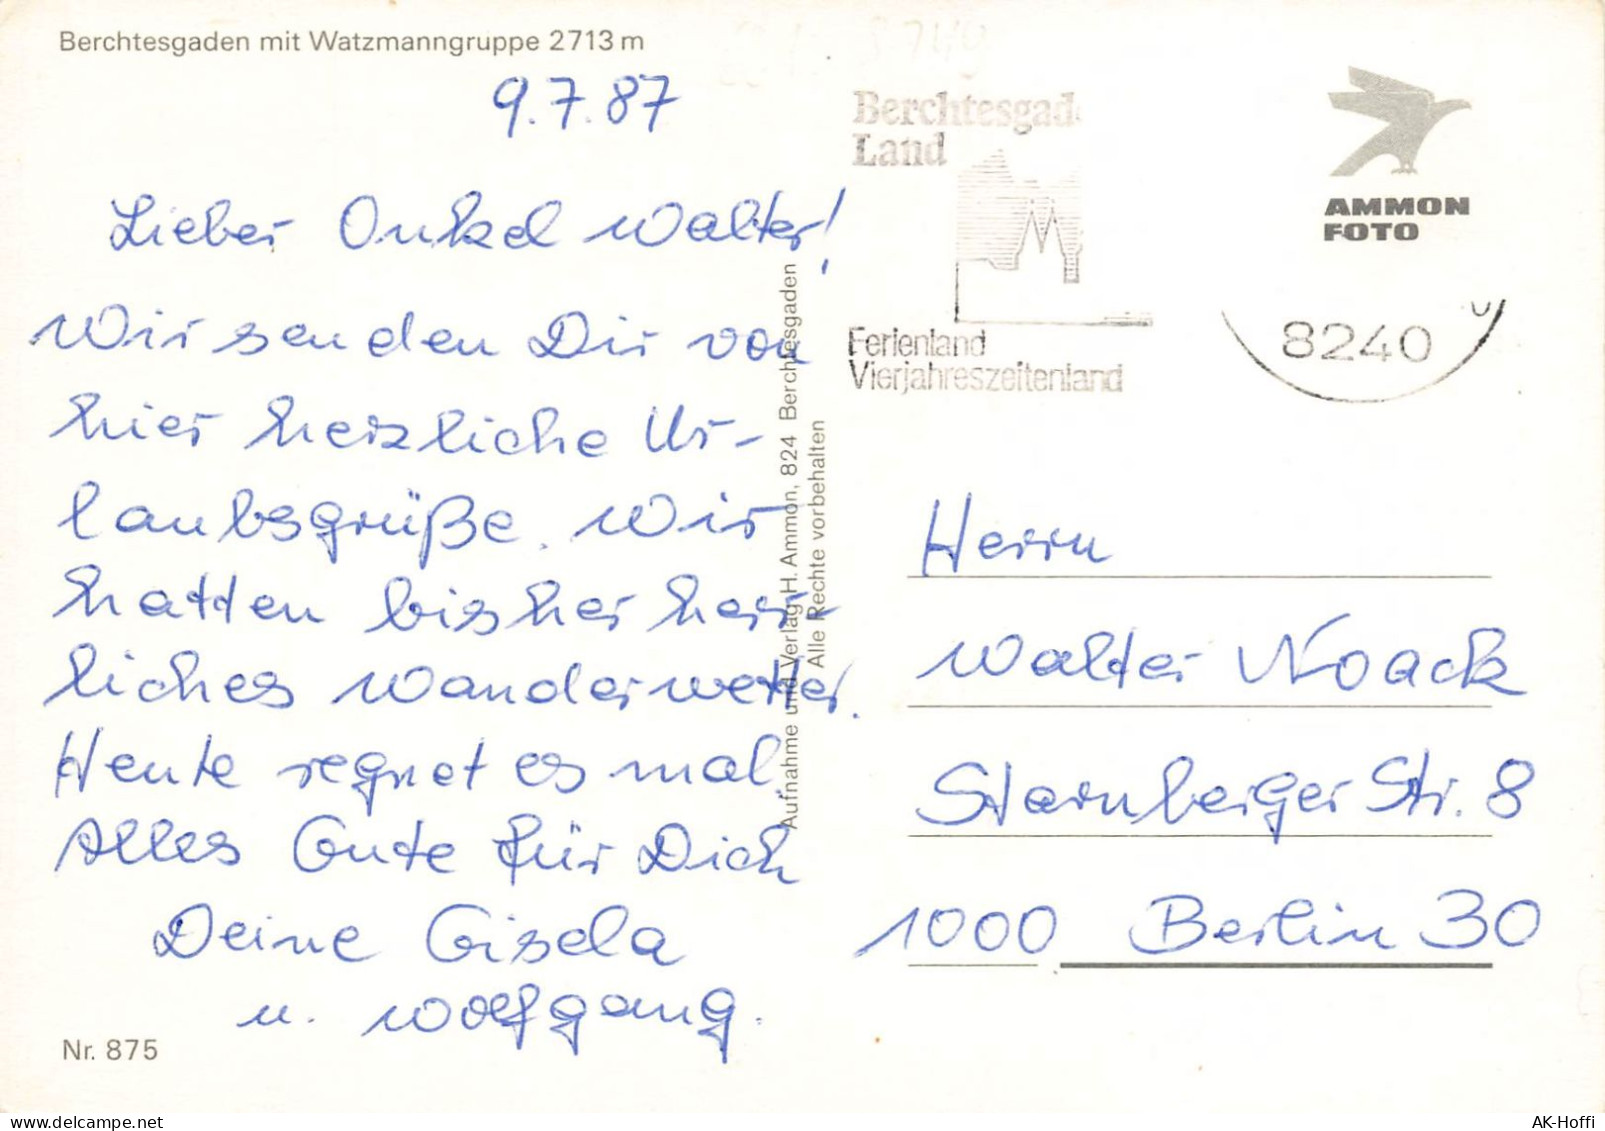 Berchtesgaden mit Watzmanngruppe 2713 m
9.7.87
Lieber Onkel Walter!
Wir senden Dir von
hier herzliche Ur-
laubsgrüße. Wir
hatten bisher herr-
liches Wanderwetter.
Heute regnet es mal.
Alles Gute für Dich
Deine Gisela
u. Wolfgang.
Nr. 875
Aufnahme und Verlag H. Ammon, 824 Berchtesgaden
Alle Rechte vorbehalten
Berchtesgad
Land
Ferienland
Vierjahreszeitenland
8240
AMMON
FOTO
Herrn
Walter Noack
Starnberger Str. 8
1000 Berlin 30
AK-Hoffi